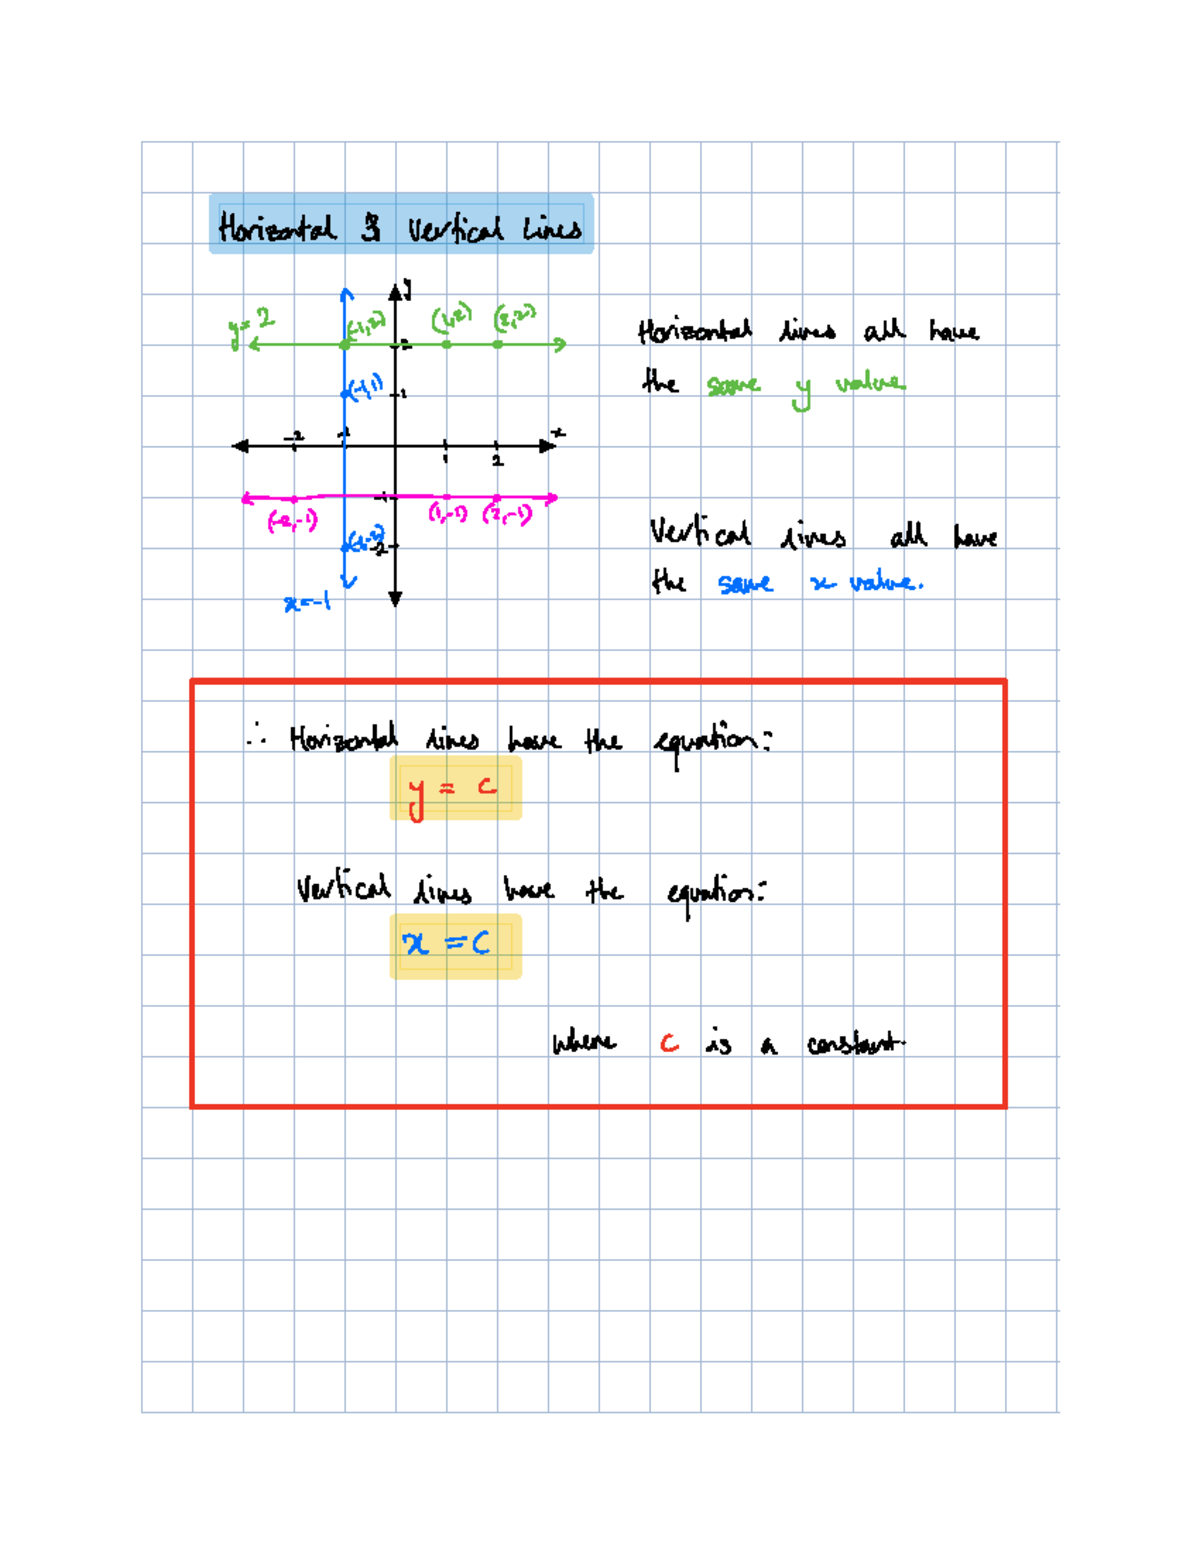 Horizontal & Vertical Lines
y
y = 2
(-1,2)
(1,2)
(2,2)
2
Horizontal lines all have
the same y value
(-1,1)
1
-2
-1
x
1
2
-1
(-2,-1)
(1,-1)
(2,-1)
Vertical lines all have
the same x value.
(-1,-2)
-2
x=-1
∴ Horizontal lines have the equation:
y = c
Vertical lines have the equation:
x = c
where c is a constant.